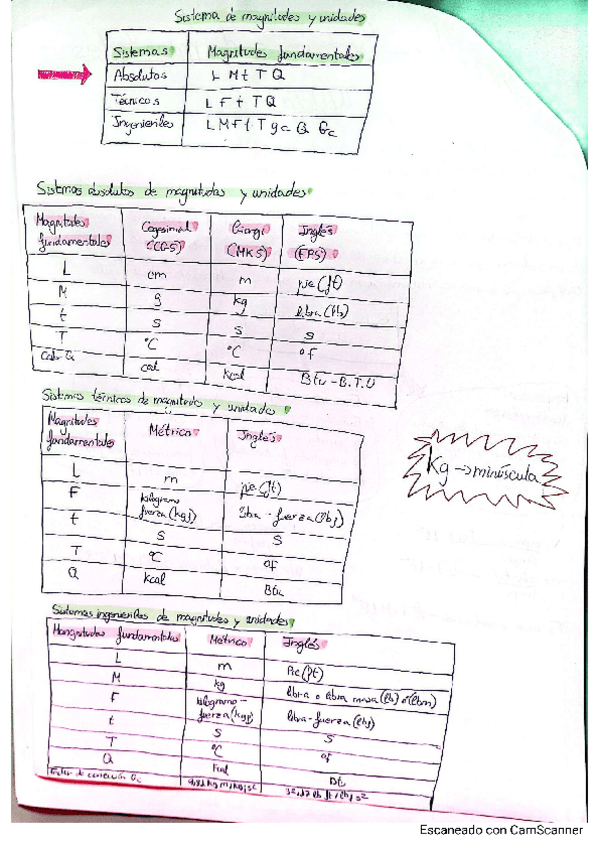 Sistema de magnitudes y unidades
Sistemas Magnitudes fundamentales
Absolutos L M t T Q
Técnicos L F t T Q
Ingenieriles L M F t T gc Q Gc
Sistemas absolutos de magnitudes y unidades
Magnitudes fundamentales Cegesimal (CGS) Giorgi (MKS) Inglés (FPS)
L cm m pie (ft)
M g kg libra (lb)
t s s s
T ºC ºC ºF
Q cal kcal Btu - B.T.U
Sistemas técnicos de magnitudes y unidades
Magnitudes fundamentales Métrico Inglés
L m pie (ft)
F kilogramo fuerza (kgf) libra - fuerza (lbf)
t s s
T ºC ºF
Q kcal Btu
Kg → minúscula
Sistemas ingenieriles de magnitudes y unidades
Mangnitudes fundamentales Métrico Inglés
L m Pie (ft)
M kg libra o libra masa (lb) ó (lbm)
F kilogramo - fuerza (kgf) libra - fuerza (lbf)
t s s
T ºC ºF
Q kcal Bt
Escaneado con CamScanner